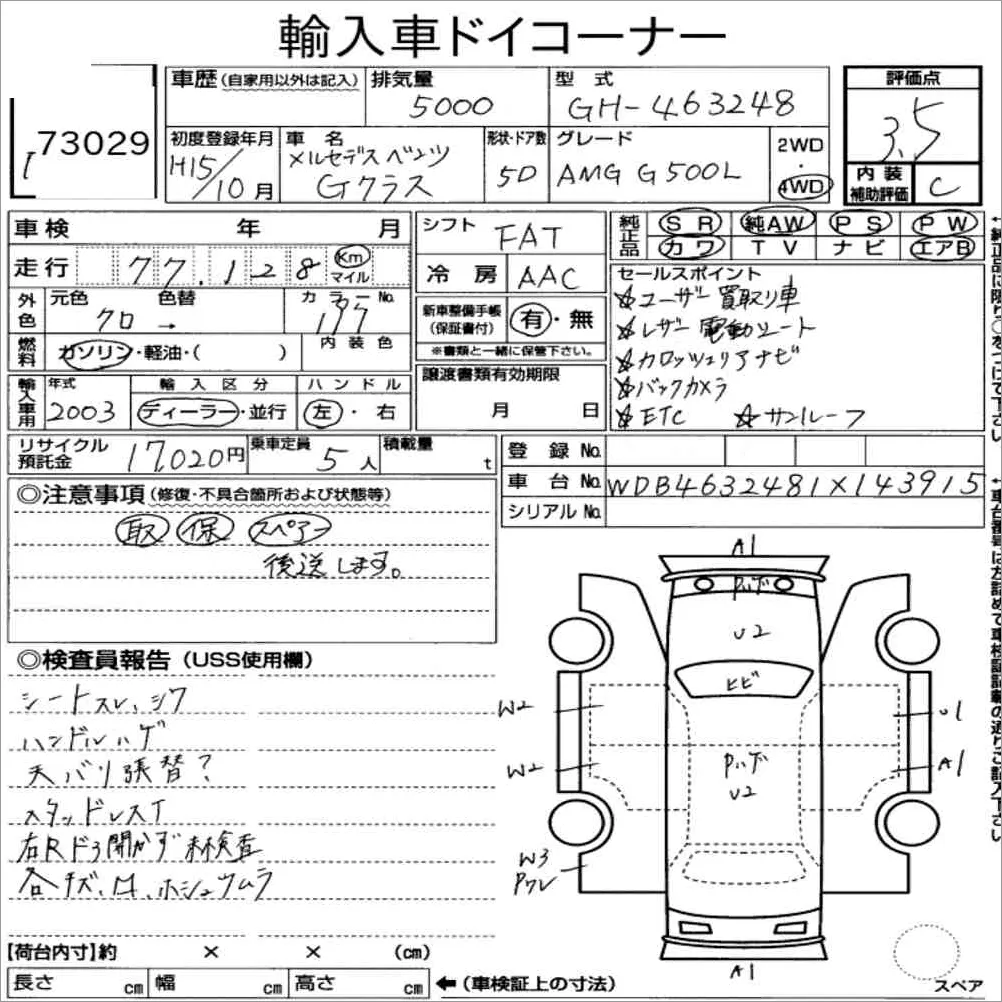 輸入車ドイコーナー
73029
車歴(自家用以外は記入) 排気量 型式 評価点
5000 GH-463248 3.5
初度登録年月 車名 形状・ドア数 グレード 2WD
H15/10月 メルセデスベンツ Gクラス 5D AMG G500L 4WD
内装補助評価 C
車検 年 月 シフト FAT
走行 77,128 Km マイル 冷房 AAC
純正品 SR 純AW PS PW
カワ TV ナビ エアB
外色 元色 色替 カラーNo. 197
クロ → 内装色
新車整備手帳(保証書付) 有・無
※書類と一緒に保管下さい。
セールスポイント
☆ユーザー買取り車
☆レザー電動シート
☆カロッツェリアナビ
☆バックカメラ
☆ETC ☆サンルーフ
燃料 ガソリン・軽油・( )
輸入車用 年式 輸入区分 ハンドル
2003 ディーラー・並行 左・右
譲渡書類有効期限
月 日
リサイクル預託金 17,020円 乗車定員 5人 積載量 t
登録No.
車台No. WDB4632481X143915
シリアルNo.
◎注意事項(修復・不具合箇所および状態等)
取 保 スペアー
後送します。
◎検査員報告(USS使用欄)
シートスレ、シワ
ハンドルハゲ
天バリ張替?
スタッドレスT
右Rドア開かず未検査
各キズ、凹、ホシュウムラ
A1
Pハゲ
U2
ヒビ
W2 U1
Pハゲ
U2
W2 A1
W3
Pワレ
A1
スペア
【荷台内寸】約 × × (cm)
長さ cm 幅 cm 高さ cm ←(車検証上の寸法)